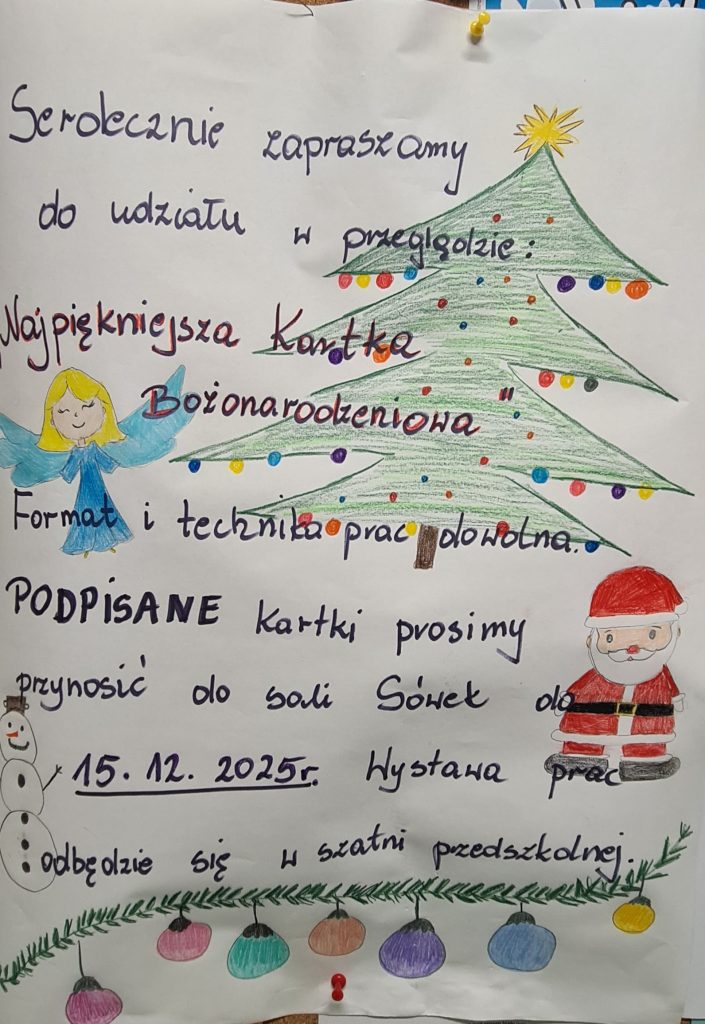 Serdecznie zapraszamy
do udziału w przeglądzie:
Najpiękniejsza Kartka
Bożonarodzeniowa"
Format i technika prac dowolna.
PODPISANE kartki prosimy
przynosić do sali Sówek do
15. 12. 2025r. Wystawa prac
odbędzie się w szatni przedszkolnej.